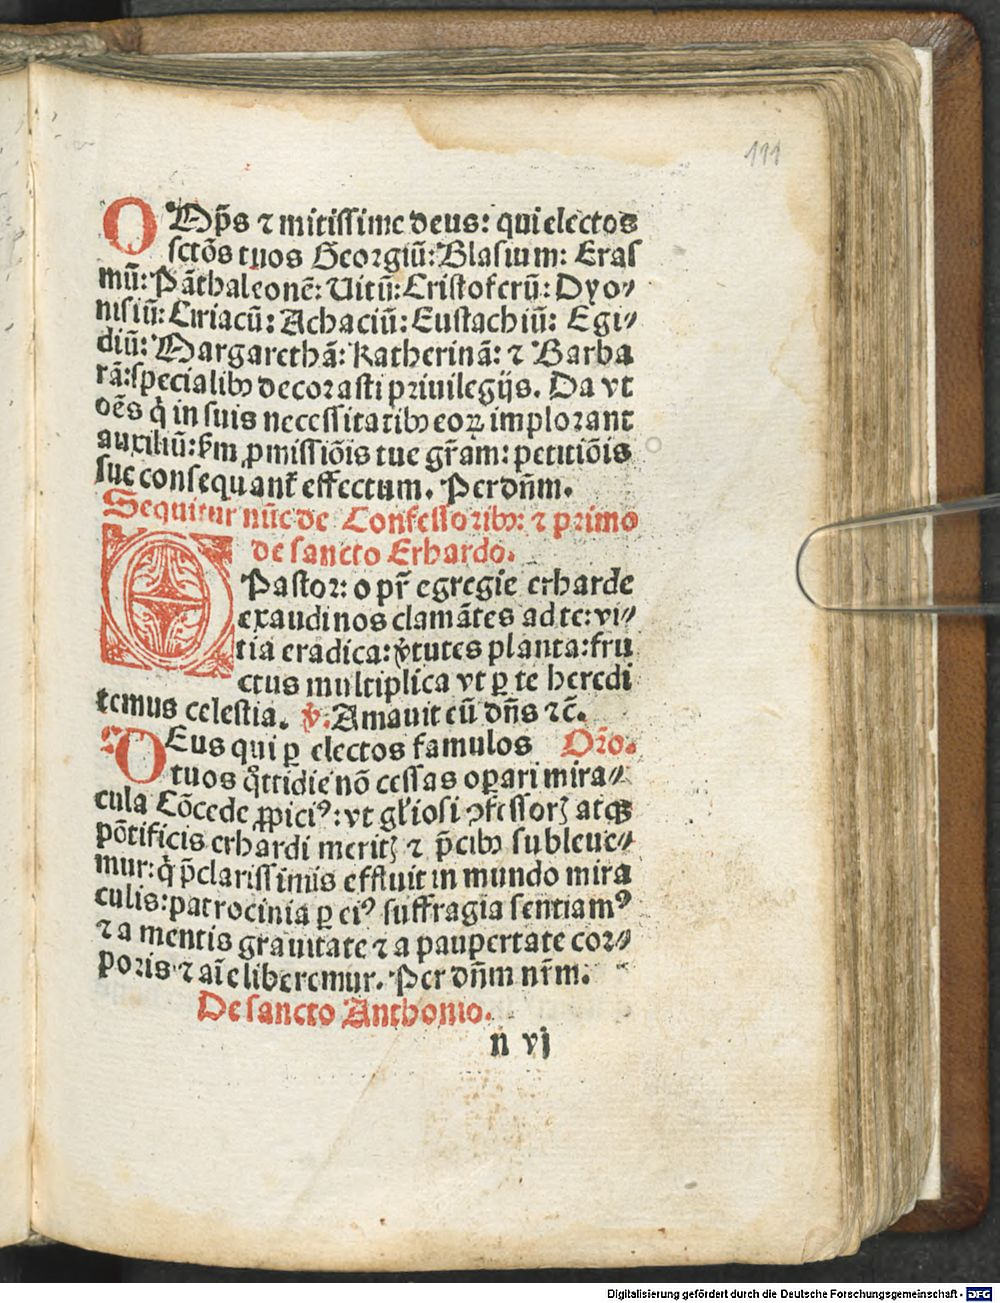 111
OMp̄s ⁊ mitissime deus: qui electos
sctōs tuos Georgiū: Blasium: Eras
mū: Pāthaleonē: Uitū: Cristoferū: Dyo⸗
nisiū: Ciriacū: Achaciū: Eustachiū: Egi⸗
diū: Margarethā: Katherinā: ⁊ Barba
rā: specialibꝰ decorasti priuilegijs. Da vt
oēs q̇ in suis necessitatibꝰ eoꝝ implorant
auxiliū: ẜm ꝓmissiōis tue gr̄am: petitiōis
sue consequant᷑ effectum. Per dn̄m.
Sequitur nūc de Confessoribꝰ: ⁊ primo
de sancto Erhardo.
O Pastor: o pr̄ egregie erharde
exaudi nos clamātes ad te: vi⸗
tia eradica: v̇tutes planta: fru
ctus multiplica vt ꝑ te heredi
temus celestia. ℣. Amauit eū dn̄s ⁊c̄.
DEus qui ꝑ electos famulos Or̄o.
tuos q̊ttidie nō cessas oꝑari mira⸗
cula Cōcede ꝓpiciꝰ: vt gl̓iosi ꝯfessorꝭ atqꝫ
pōtificis erhardi meritꝭ ⁊ p̄cibꝰ subleue⸗
mur: q̇ p̄clarissimis effluit in mundo mira
culis: patrocinia ꝑ eiꝰ suffragia sentiamꝰ
⁊ a mentis grauitate ⁊ a pauꝑtate cor⸗
poris ⁊ aīe liberemur. Per dn̄m nr̄m.
De sancto Anthonio.
n vj
Digitalisierung gefördert durch die Deutsche Forschungsgemeinschaft - DFG